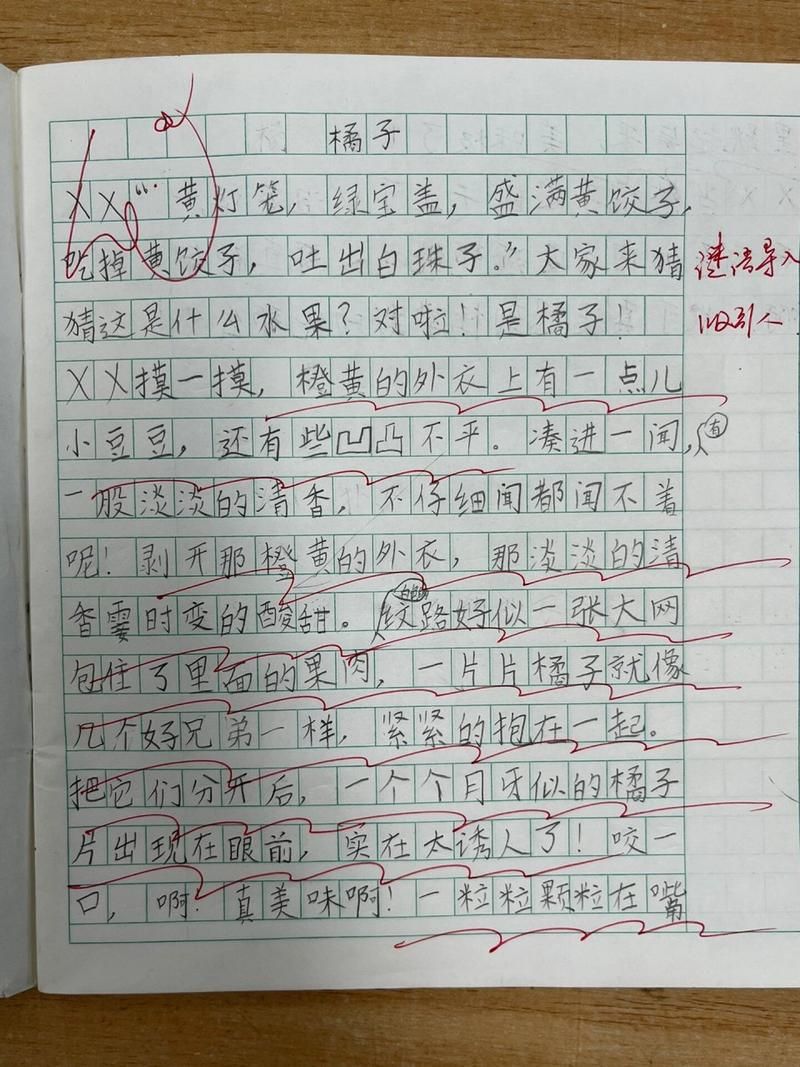 橘子
XX“黄灯笼，绿宝盖，盛满黄饺子，
吃掉黄饺子，吐出白珠子。”大家来猜
谜语导入
猜这是什么水果？对啦！是橘子！
吸引人
XX摸一摸，橙黄的外衣上有一点儿
小豆豆，还有些凹凸不平。凑进一闻，有
一股淡淡的清香，不仔细闻都闻不着
呢！剥开那橙黄的外衣，那淡淡的清
香霎时变的酸甜。白色的纹路好似一张大网
包住了里面的果肉，一片片橘子就像
几个好兄弟一样，紧紧的抱在一起。
把它们分开后，一个个月牙似的橘子
片出现在眼前，实在太诱人了！咬一
口，啊！真美味啊！一粒粒颗粒在嘴